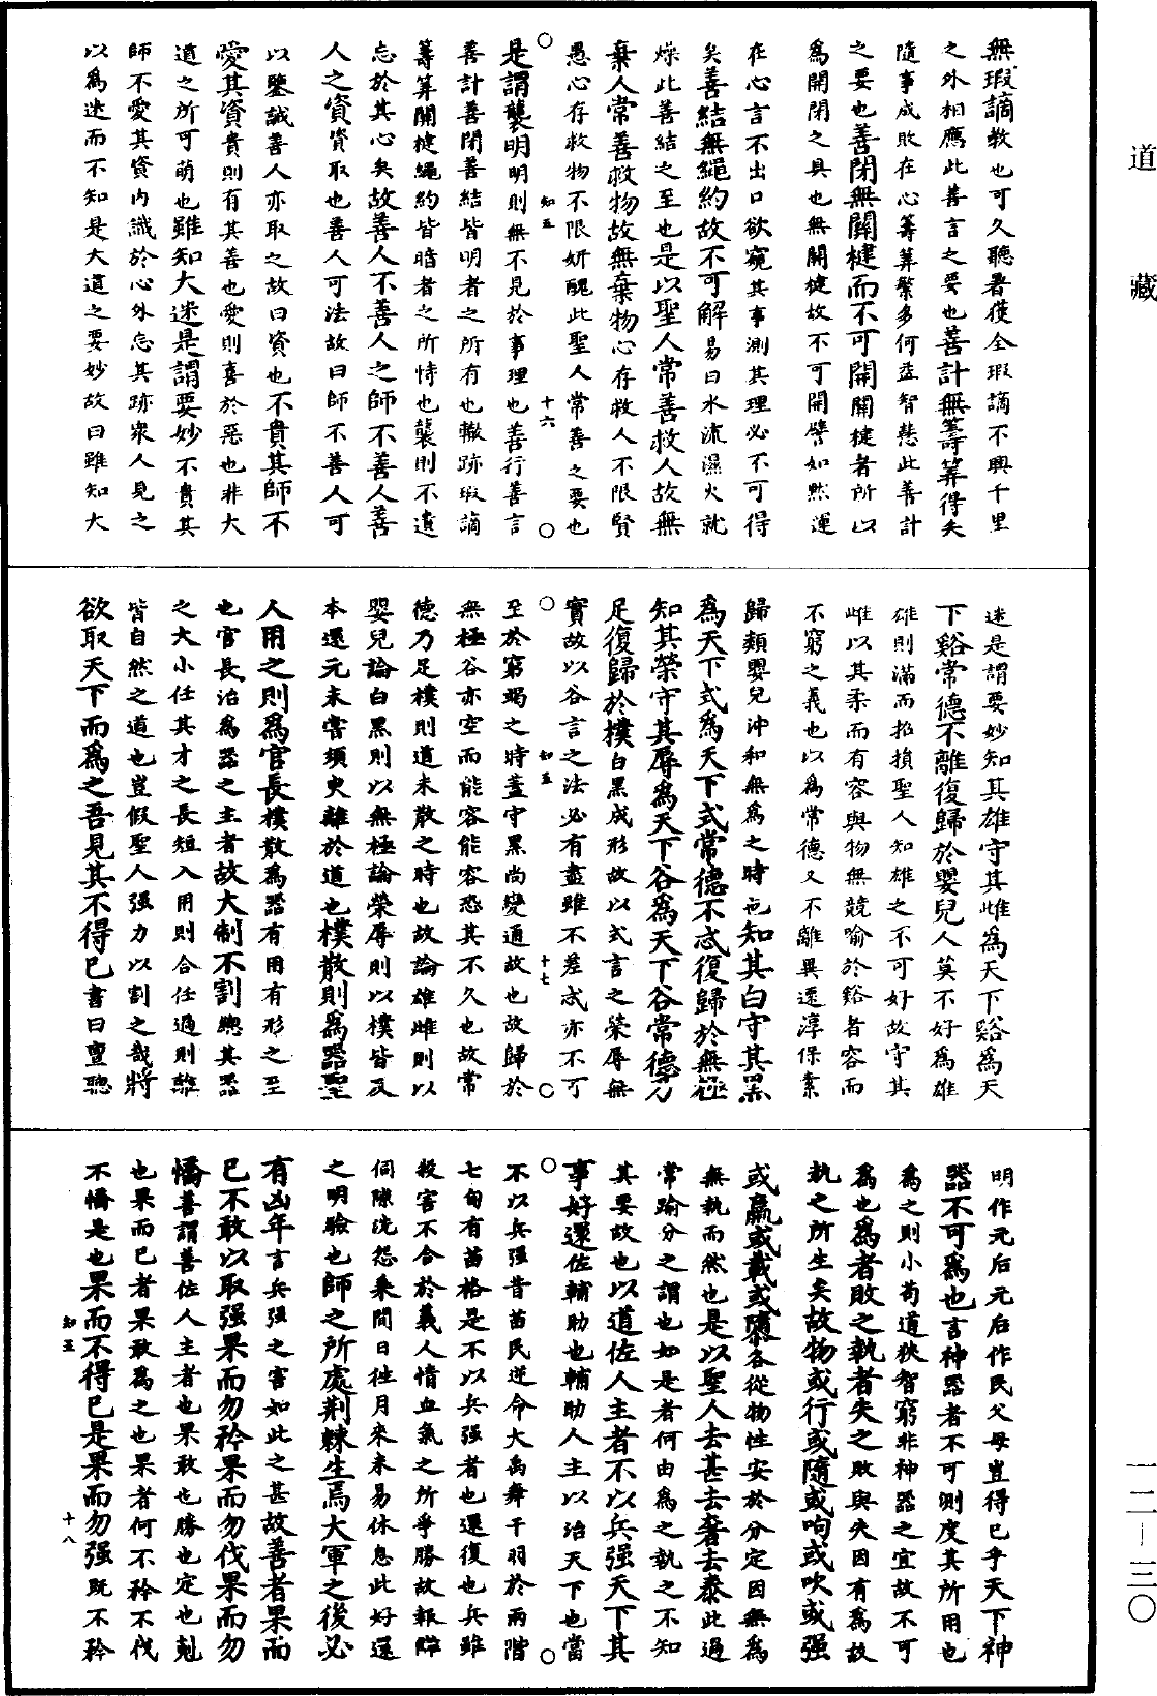 無瑕謫教也可久聽者獲全瑕謫不興千里
之外相應此善言之要也善計無籌筭得失
隨事成敗在心籌筭繁多何益智慧此善計
之要也善閉無關楗而不可開關楗者所以
為開閉之具也無關楗故不可開譬如默運
在心言不出口欲窺其事測其理必不可得
矣善結無繩約故不可解易曰水流濕火就
燥此善結之至也是以聖人常善救人故無
棄人常善救物故無棄物心存救人不限賢
愚心存救物不限妍醜此聖人常善之要也
知五 十六
是謂襲明明則無不見於事理也善行善言
善計善閉善結皆明者之所有也轍跡瑕謫
籌筭關楗繩約皆暗者之所恃也襲則不遺
忘於其心矣故善人不善人之師不善人善
人之資資取也善人可法故曰師不善人可
以鑒誡善人亦取之故曰資也不貴其師不
愛其資貴則有其善也愛則喜於惡也非大
道之所可萌也雖知大迷是謂要妙不貴其
師不愛其資內識於心外忘其跡衆人見之
以為迷而不知是大道之要妙故曰雖知大
迷是謂要妙知其雄守其雌為天下谿為天
下谿常德不離復歸於嬰兒人莫不好為雄
雄則滿而招損聖人知雄之不可好故守其
雌以其柔而有容與物無競喻於谿者容而
不窮之義也以為常德又不離異還淳保素
歸類嬰兒沖和無為之時也知其白守其黑
為天下式為天下式常德不忒復歸於無極
知其榮守其辱為天下谷為天下谷常德乃
足復歸於樸白黑成形故以式言之榮辱無
實故以谷言之法必有盡雖不差忒亦不可
知五 十七
至於窮竭之時蓋守黑尚變通故也故歸於
無極谷亦空而能容能容恐其不久也故常
德乃足樸則道未散之時也故論雄雌則以
嬰兒論白黑則以無極論榮辱則以樸皆反
本還元未嘗須臾離於道也樸散則為器聖
人用之則為官長樸散為器有用有形之至
也官長治為器之主者故大制不割總其器
之大小任其才之長短入用則合任適則離
皆自然之道也豈假聖人强力以割之哉將
欲取天下而為之吾見其不得已書曰亶聰
明作元后元后作民父母豈得已乎天下神
器不可為也言神器者不可測度其所用也
為之則小苟道狹智窮非神器之宜故不可
為也為者敗之執者失之敗與失因有為故
執之所生矣故物或行或隨或呴或吹或强
或羸或載或隳各從物性安於分定因無為
無執而然也是以聖人去甚去奢去泰此過
常踰分之謂也如是者何由為之執之不知
其要故也以道佐人主者不以兵强天下其
事好還佐輔助也輔助人主以治天下也當
不以兵强昔苗民逆命大禹舞干羽於兩階
七旬有苗格是不以兵强者也還復也兵雖
殺害不合於義人情血氣之所爭勝故報讎
伺隙洗怨乘間日徃月來未易休息此好還
之明驗也師之所處荆棘生焉大軍之後必
有凶年言兵强之害如此之甚故善者果而
已不敢以取强果而勿矜果而勿伐果而勿
憍善謂善佐人主者也果敢也勝也定也剋
也果而已者果敢為之也果者何不矜不伐
不憍是也果而不得已是果而勿强既不矜
知五 十八
道藏
一二—三〇